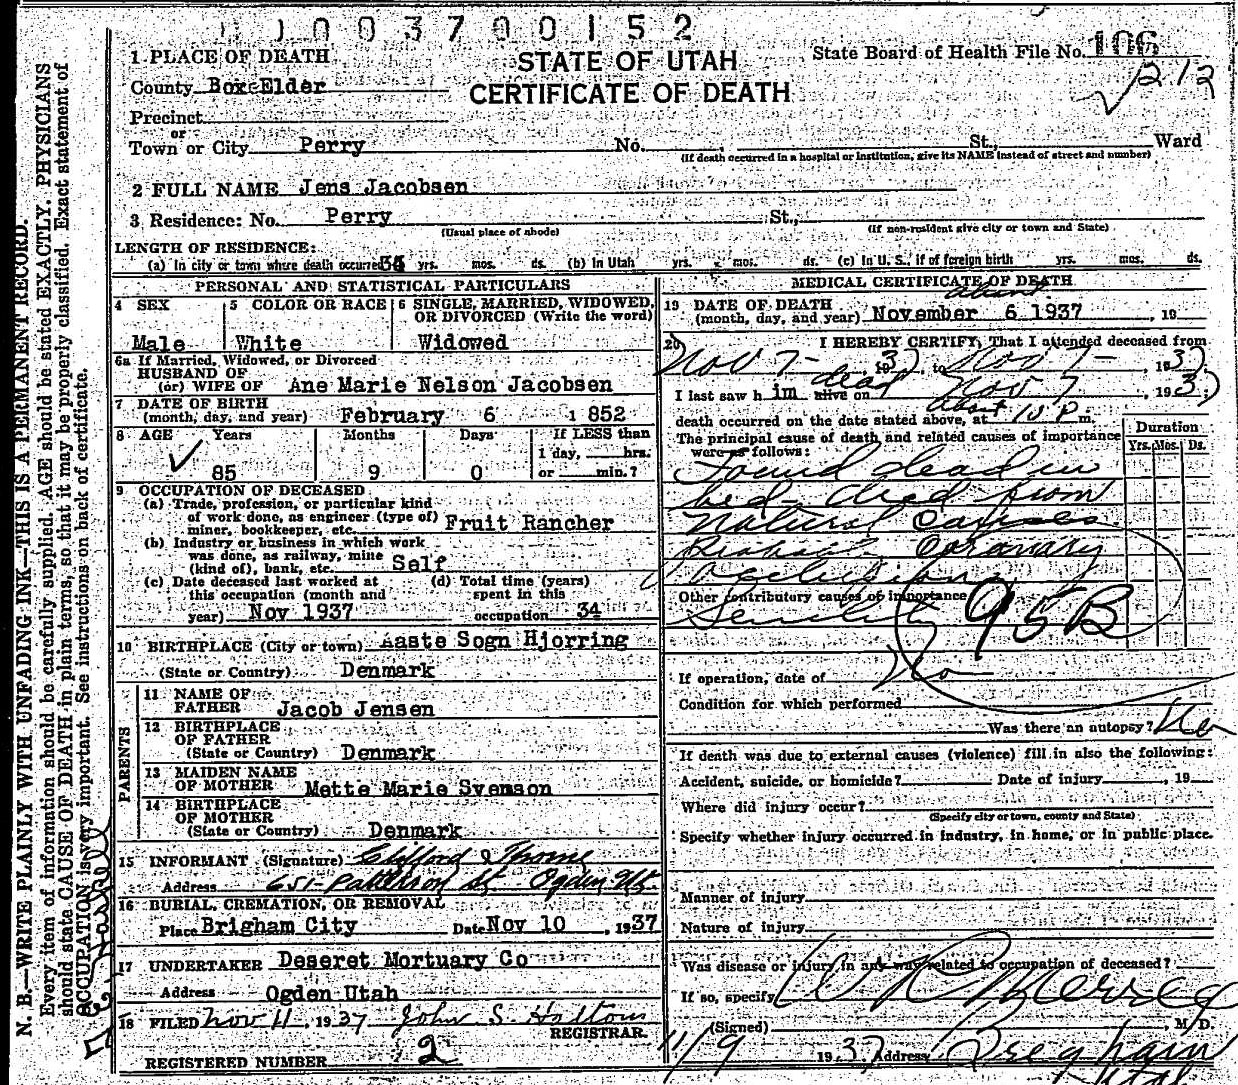 1003700152
STATE OF UTAH
CERTIFICATE OF DEATH
State Board of Health File No. 106
212
1 PLACE OF DEATH
County Box Elder
Precinct
or
Town or City Perry No. St., Ward
(If death occurred in a hospital or institution, give its NAME instead of street and number)
2 FULL NAME Jens Jacobsen
3 Residence: No. Perry St.,
(Usual place of abode) (If non-resident give city or town and State)
LENGTH OF RESIDENCE:
(a) In city or town where death occurred 34 yrs. mos. ds. (b) In Utah yrs. mos. ds. (c) In U. S., if of foreign birth yrs. mos. ds.
PERSONAL AND STATISTICAL PARTICULARS
4 SEX 5 COLOR OR RACE 6 SINGLE, MARRIED, WIDOWED, OR DIVORCED (Write the word)
Male White Widowed
6a If Married, Widowed, or Divorced
HUSBAND OF
(or) WIFE OF Ane Marie Nelson Jacobsen
7 DATE OF BIRTH
(month, day, and year) February 6 1852
8 AGE Years Months Days If LESS than
1 day, hrs.
85 9 0 or min.?
9 OCCUPATION OF DECEASED
(a) Trade, profession, or particular kind
of work done, as engineer (type of)
miner, bookkeeper, etc. Fruit Rancher
(b) Industry or business in which work
was done, as railway, mine
(kind of), bank, etc. Self
(c) Date deceased last worked at (d) Total time (years)
this occupation (month and spent in this
year) Nov 1937 occupation 34
10 BIRTHPLACE (City or town) Aaste Sogn Hjorring
(State or Country) Denmark
PARENTS
11 NAME OF
FATHER Jacob Jensen
12 BIRTHPLACE
OF FATHER
(State or Country) Denmark
13 MAIDEN NAME
OF MOTHER Mette Marie Svenson
14 BIRTHPLACE
OF MOTHER
(State or Country) Denmark
15 INFORMANT (Signature) Clifford Thorne
Address 651 Patterson St. Ogden Ut.
16 BURIAL, CREMATION, OR REMOVAL
Place Brigham City Date Nov 10, 1937
17 UNDERTAKER Deseret Mortuary Co
Address Ogden Utah
18 FILED Nov 11, 1937 John S. Holtom
REGISTRAR.
REGISTERED NUMBER 2
MEDICAL CERTIFICATE OF DEATH
about
19 DATE OF DEATH
(month, day, and year) November 6 1937, 19
20 I HEREBY CERTIFY, That I attended deceased from
Nov 7 - , 1937, to Nov 7 - , 1937
dead
I last saw h im alive on Nov 7, 1937
about
death occurred on the date stated above, at 10 P m.
The principal cause of death and related causes of importance
were as follows:
Duration
Yrs. Mos. Ds.
Found dead in
bed - died from
Natural Causes
Probably Coronary
Occlusion
Other contributory causes of importance
Senility
95B
If operation, date of No
Condition for which performed
Was there an autopsy? No
If death was due to external causes (violence) fill in also the following:
Accident, suicide, or homicide? Date of injury , 19
Where did injury occur?
(Specify city or town, county and State)
Specify whether injury occurred in industry, in home, or in public place.
Manner of injury
Nature of injury
Was disease or injury in any way related to occupation of deceased?
If so, specify
(Signed) W R Merrell , M. D.
11/9 1937 Address Brigham
Utah
N. B.—WRITE PLAINLY WITH UNFADING INK—THIS IS A PERMANENT RECORD.
Every item of information should be carefully supplied. AGE should be stated EXACTLY. PHYSICIANS
should state CAUSE OF DEATH in plain terms, so that it may be properly classified. Exact statement of
OCCUPATION is very important. See instructions on back of certificate.